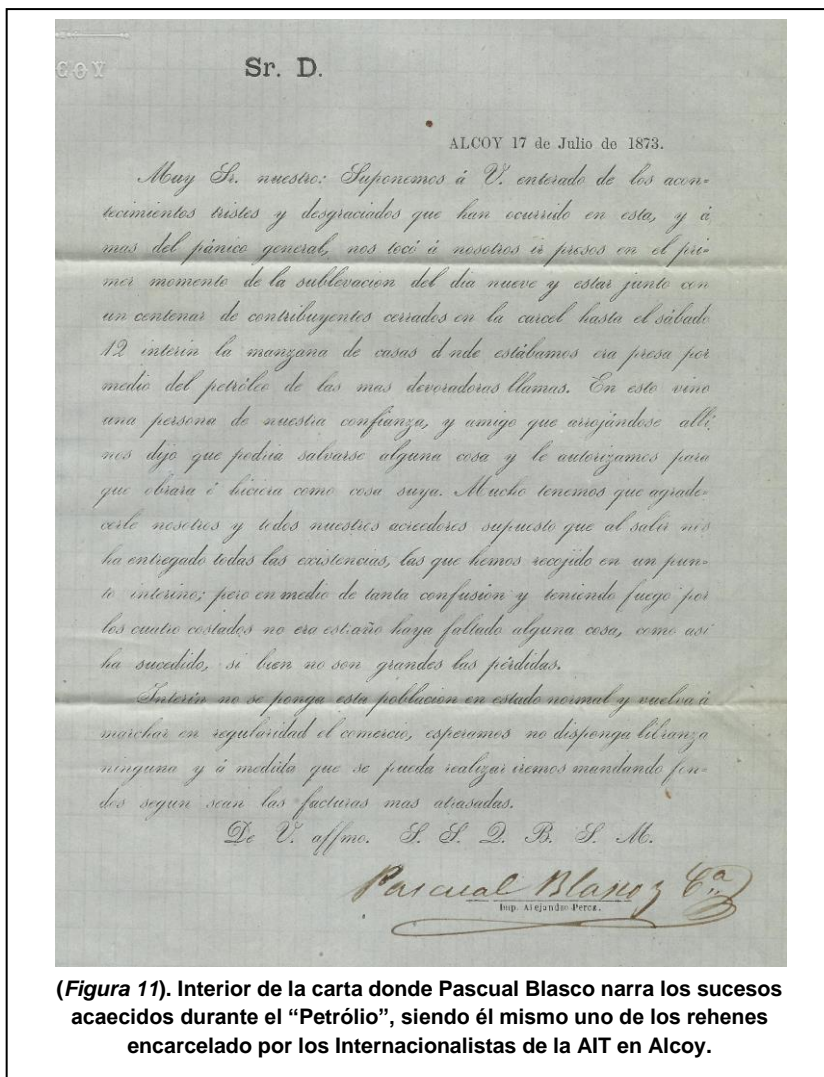 COY
Sr. D.
ALCOY 17 de Julio de 1873.
Muy Sr. nuestro: Suponemos á V. enterado de los acon-
tecimientos tristes y desgraciados que han ocurrido en esta, y á
mas del pánico general, nos tocó á nosotros ir presos en el pri-
mer momento de la sublevacion del dia nueve y estar junto con
un centenar de contribuyentes cerrados en la carcel hasta el sábado
12 interin la manzana de casas d nde estábamos era presa por
medio del petróleo de las mas devoradoras llamas. En esto vino
una persona de nuestra confianza, y amigo que arrojándose allí,
nos dijo que podria salvarse alguna cosa y le autorizamos para
que obrara é hiciera como cosa suya. Mucho tenemos que agrade-
cerle nosotros y todos nuestros acreedores supuesto que al salir nos
ha entregado todas las existencias, las que hemos recojido en un pun-
to interino; pero en medio de tanta confusion y teniendo fuego por
los cuatro costados no era estraño haya faltado alguna cosa, como asi
ha sucedido, si bien no son grandes las pérdidas.
Interin no se ponga esta poblacion en estado normal y vuelva á
marchar en regularidad el comercio, esperamos no disponga libranza
ninguna y á medida que se pueda realizar iremos mandando fon-
dos segun sean las facturas mas atrasadas.
De V. affmo. S. S. Q. B. S. M.
Pascual Blasco y Cª
Imp. Alejandro Perez.
(Figura 11). Interior de la carta donde Pascual Blasco narra los sucesos
acaecidos durante el “Petrólio”, siendo él mismo uno de los rehenes
encarcelado por los Internacionalistas de la AIT en Alcoy.